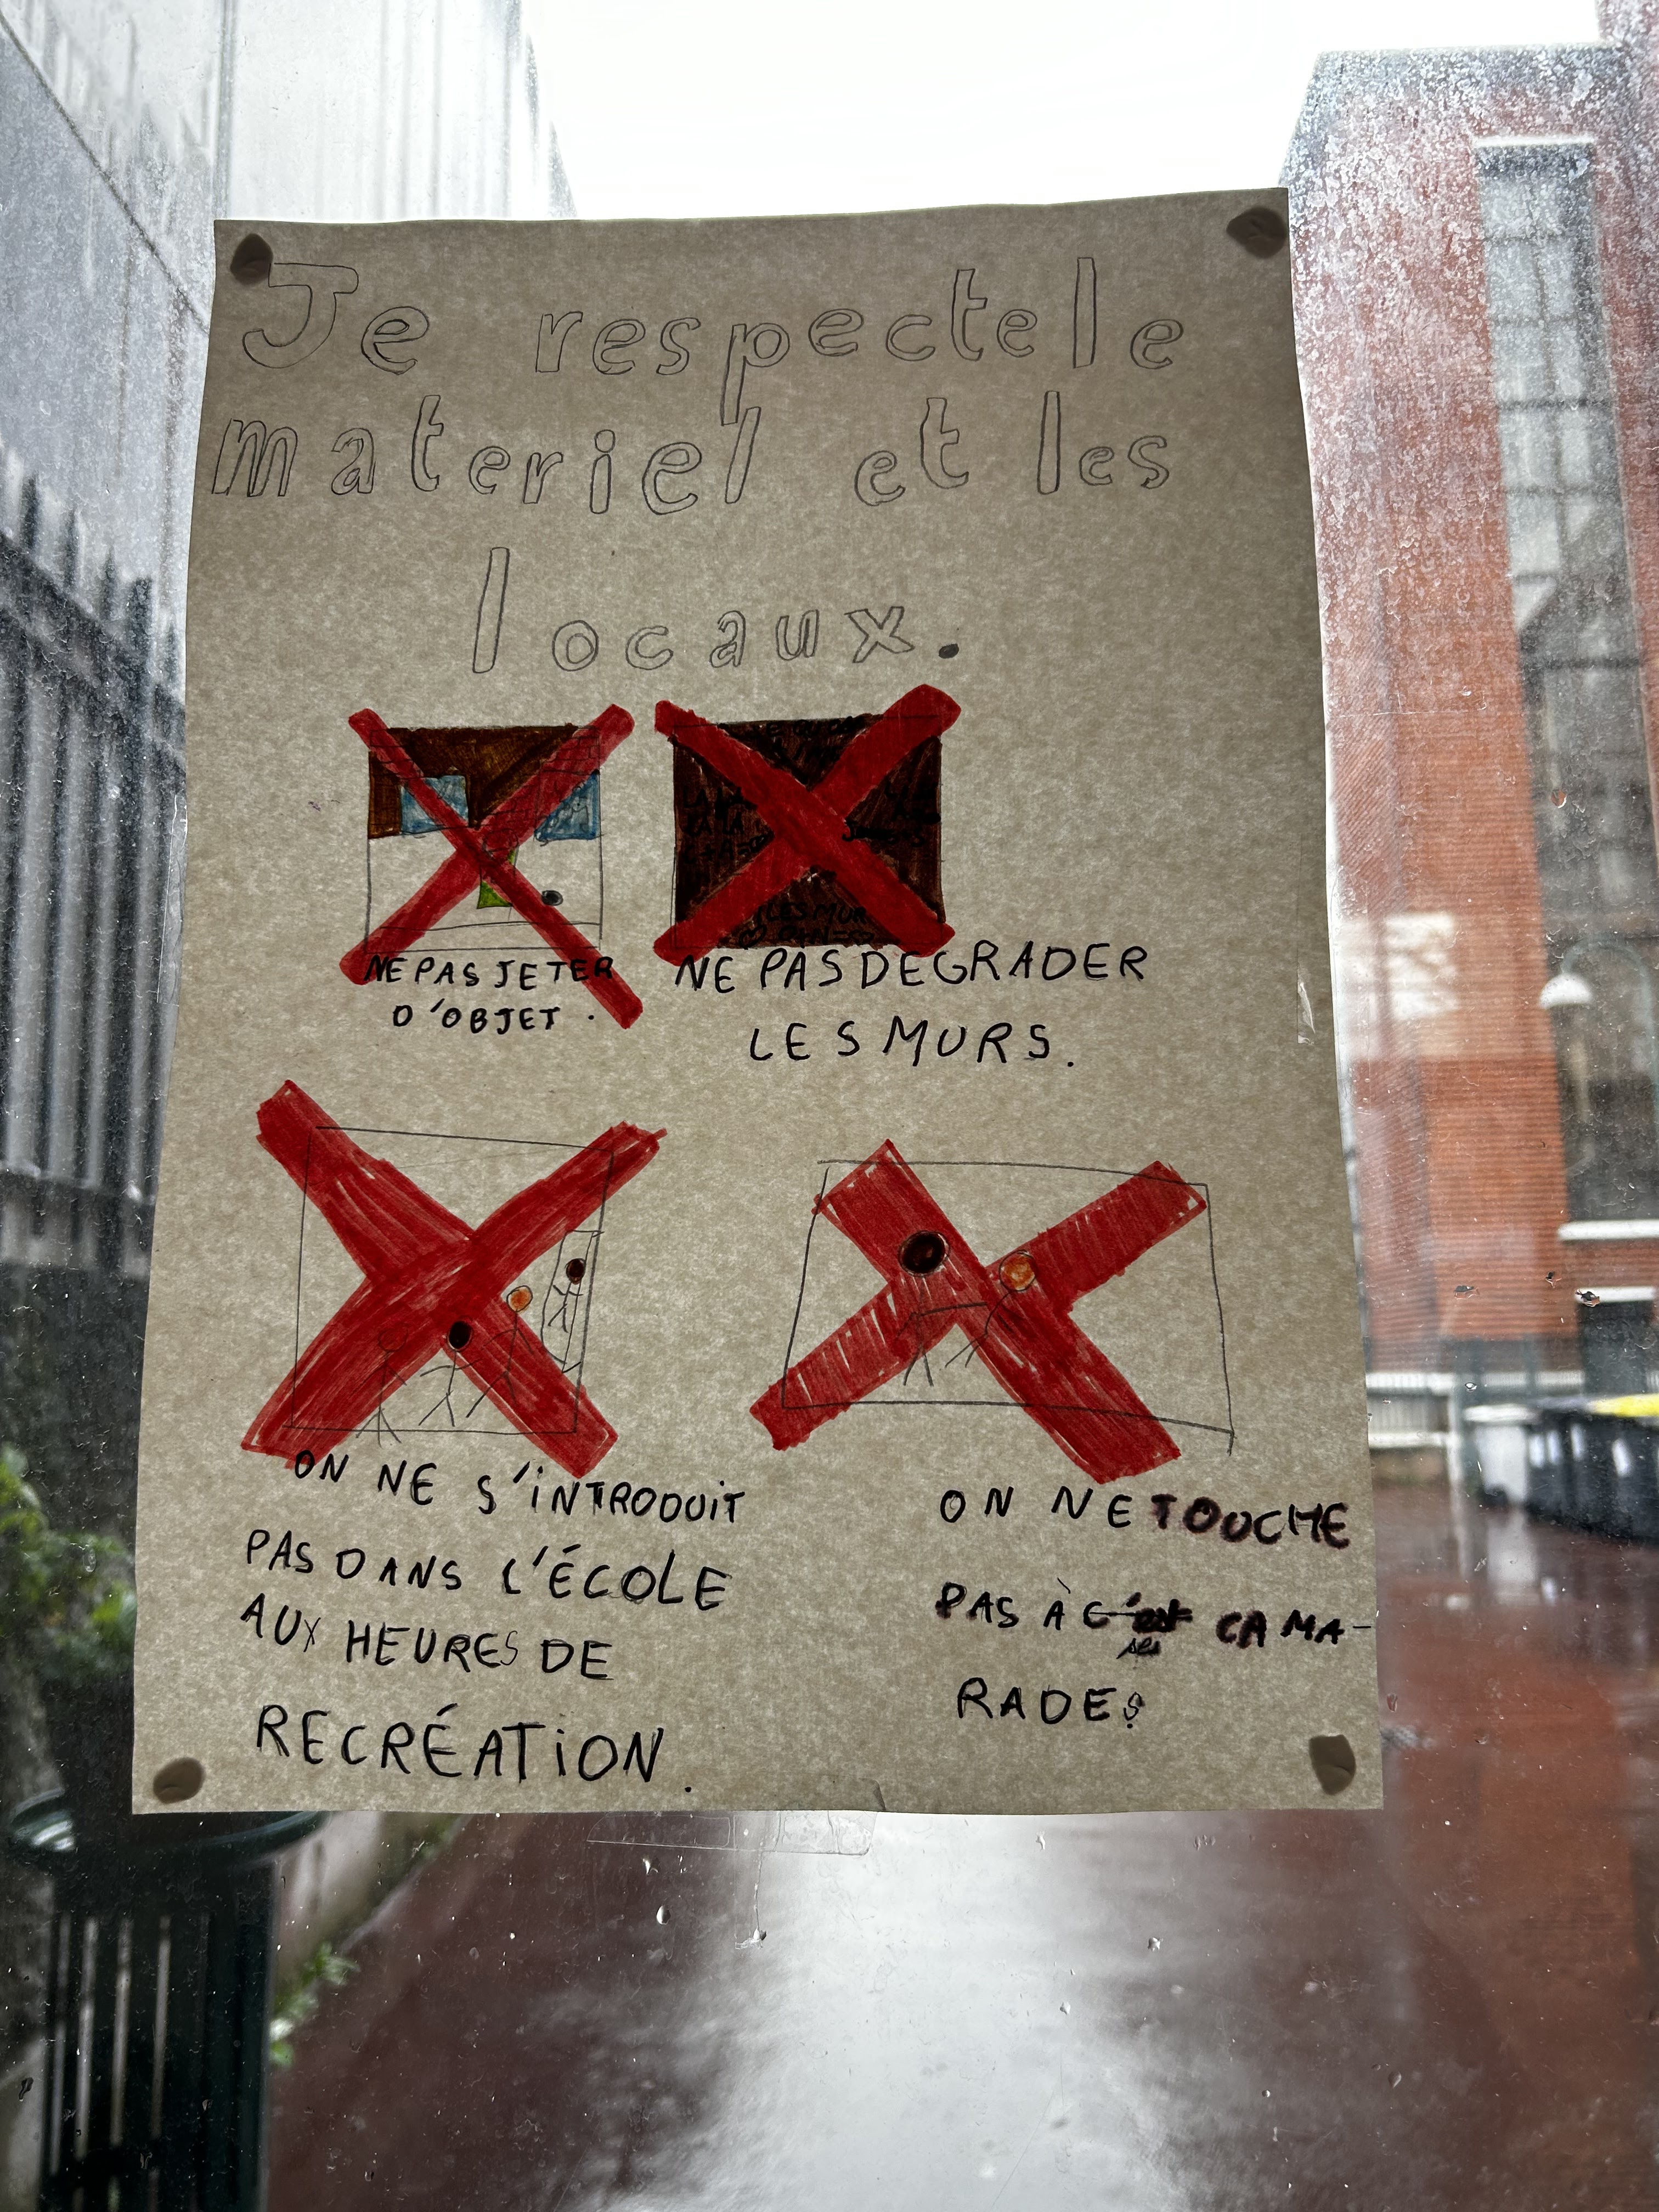 Je respecte le
materiel et les
locaux.
NE PAS JETER
D'OBJET.
NE PAS DEGRADER
LES MURS.
ON NE S'iNTRODUiT
PAS DANS L'ÉCOLE
AUX HEURES DE
RECRÉATiON.
ON NE TOUCHE
PAS À ses CAMA-
RADES
LES MUR